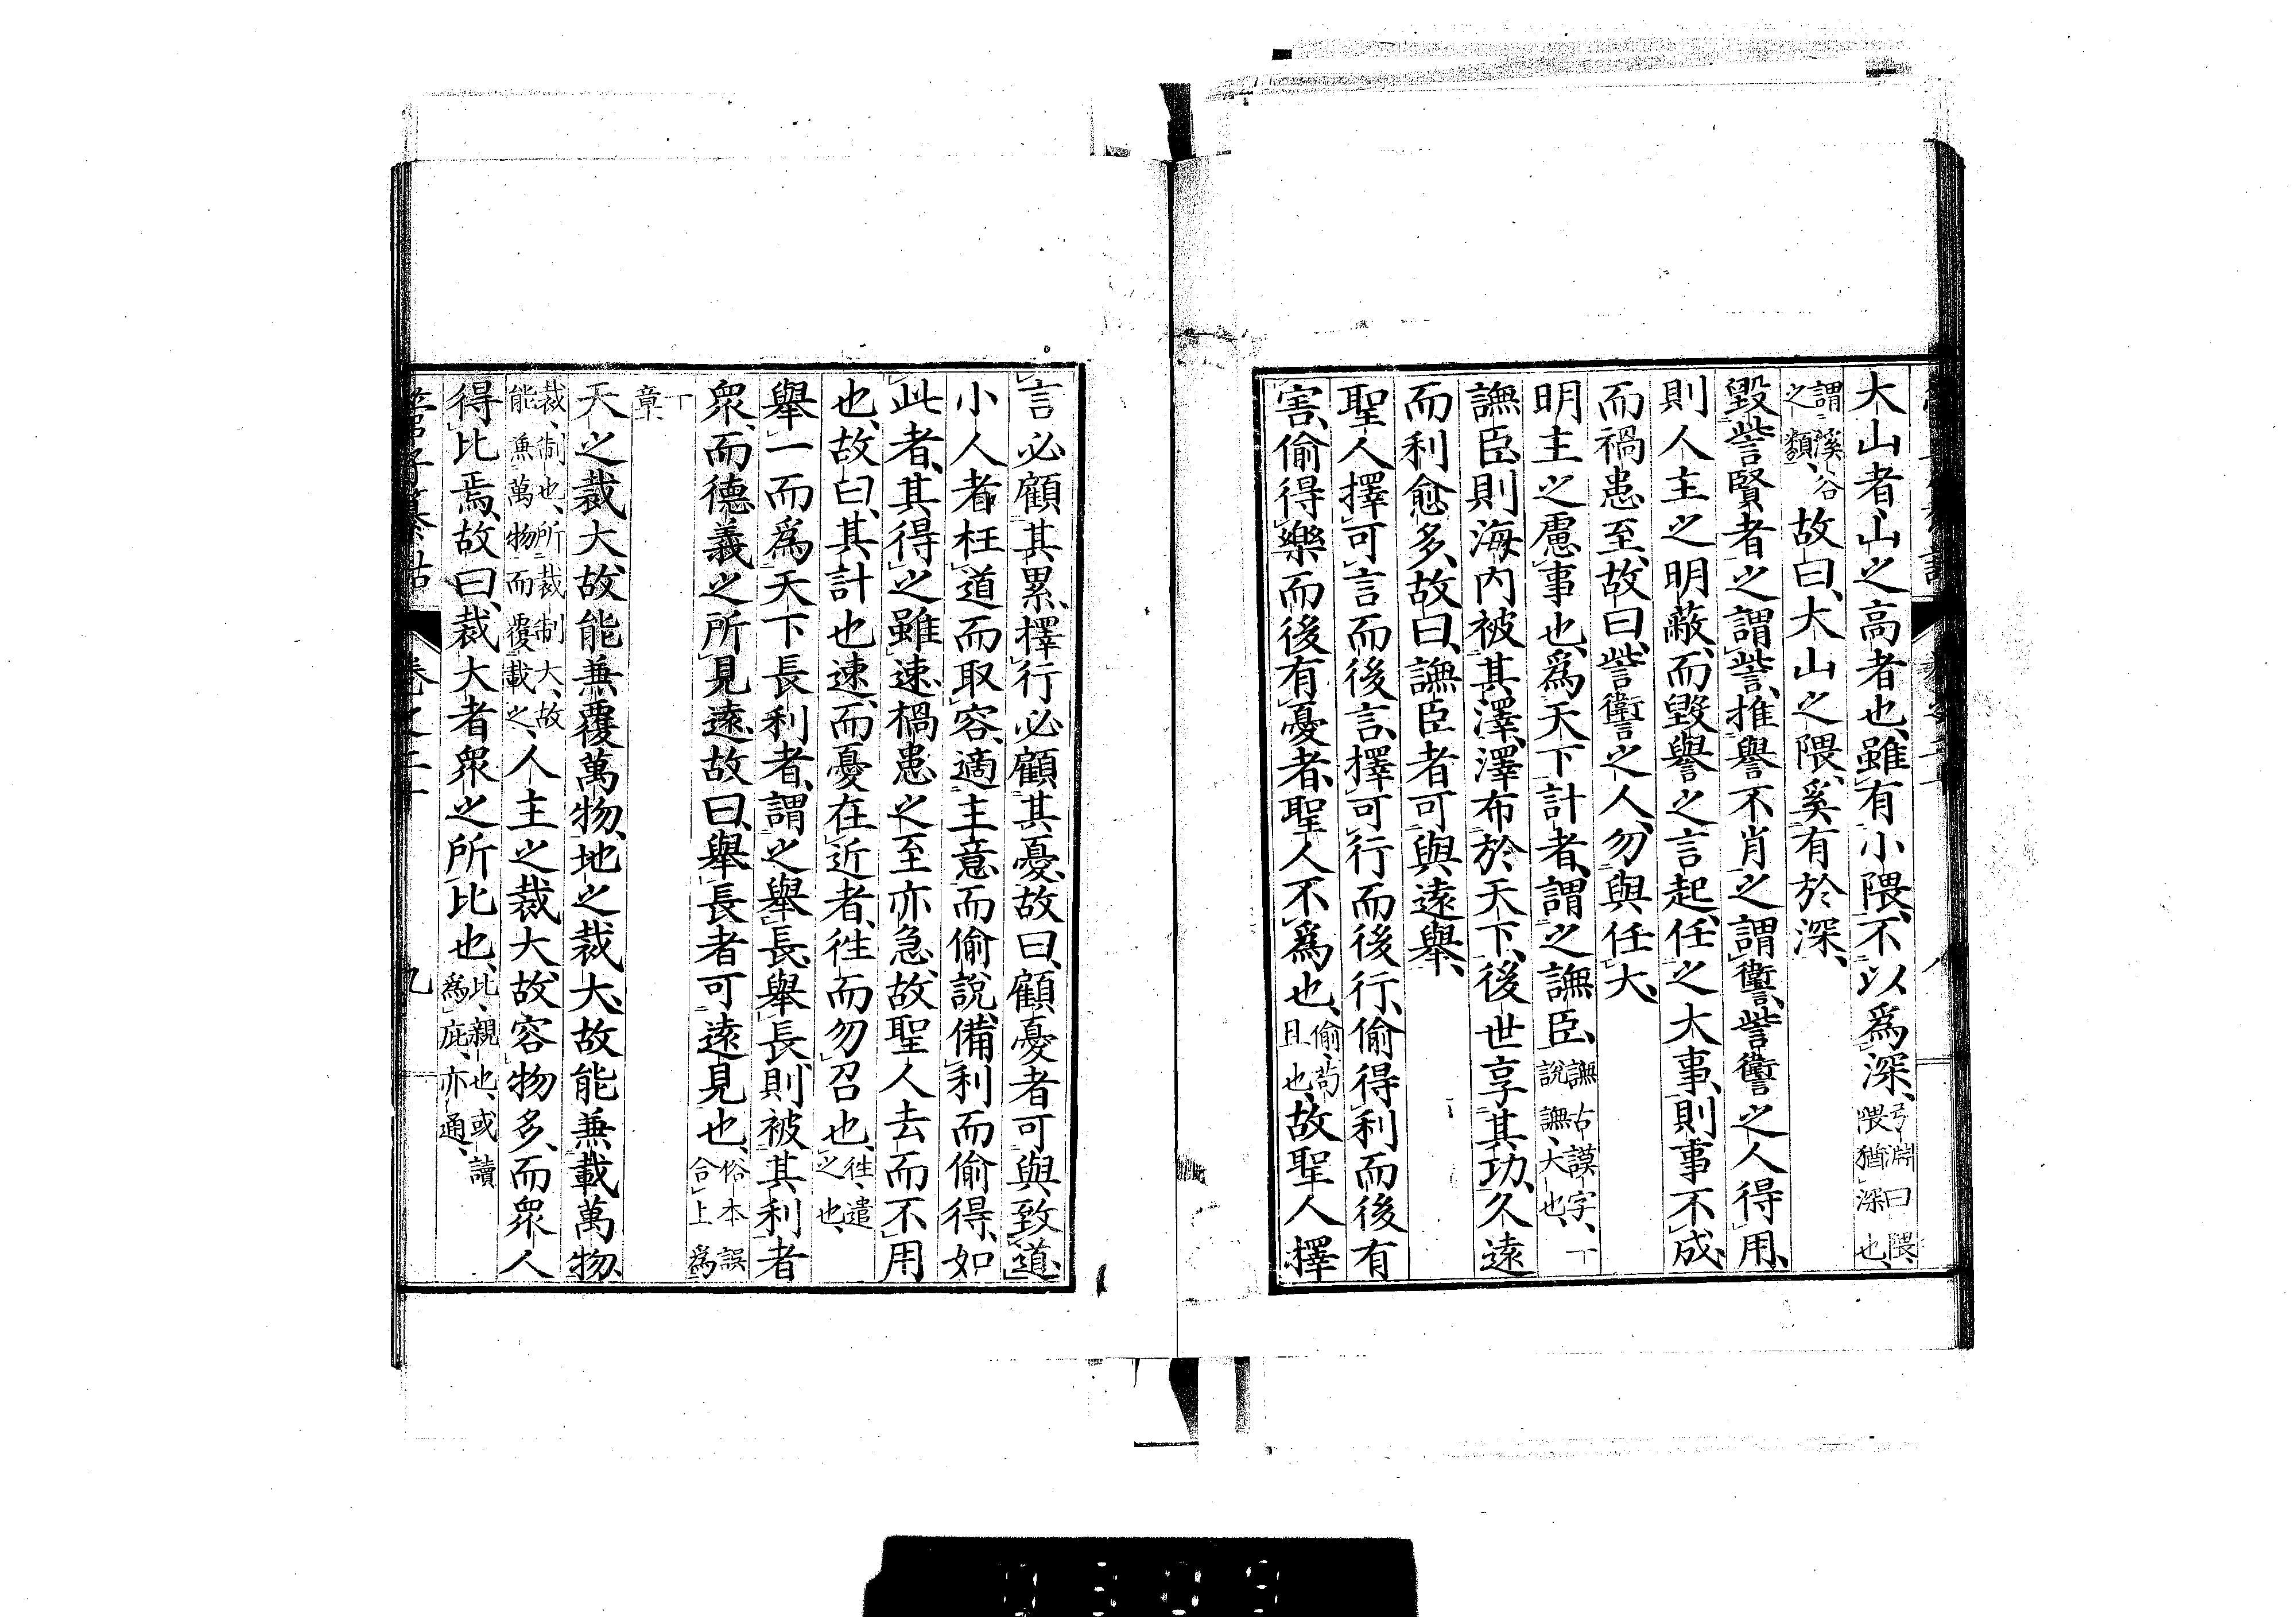 大山者、山之高者也、雖有小隈、不以爲深、弓淵曰、隈、隈猶深也、
謂溪谷之類、故曰、大山之隈、奚有於深、
毀訾賢者之謂訾、推譽不肖之謂讆、訾讆之人得用、
則人主之明蔽、而毀譽之言起、任之大事、則事不成、
而禍患至、故曰、訾讆之人、勿與任大、
明主之慮事也、爲天下計者、謂之譕臣、譕古謨字、丁說譕、大也、
譕臣、則海内被其澤、澤布於天下、後世享其功、久遠
而利愈多、故曰、譕臣者可與遠舉、
聖人擇可言而後言、擇可行而後行、偷得利而後有
害、偷得樂而後有憂者、聖人不爲也、偷、苟且也、故聖人擇
言必顧其累、擇行必顧其憂、故曰、顧憂者可與致道、
小人者、枉道而取容、適主意而偷說、備利而偷得、如
此者、其得之雖速、禍患之至亦急、故聖人去而不用
也、故曰、其計也速、而憂在近者、往而勿召也、往、遣之也、
舉一而爲天下長利者、謂之舉長、舉長、則被其利者
衆、而德義之所見遠、故曰、舉長者可遠見也、俗本誤合上爲
一章、
天之裁大、故能兼覆萬物、地之裁大、故能兼載萬物、
裁、制也、所裁制大、故能兼萬物而覆載之、人主之裁大、故容物多、而衆人
得比焉、故曰、裁大者衆之所比也、比、親也、或讀爲庇、亦通、
管子纂詁 卷之二十 九
0309